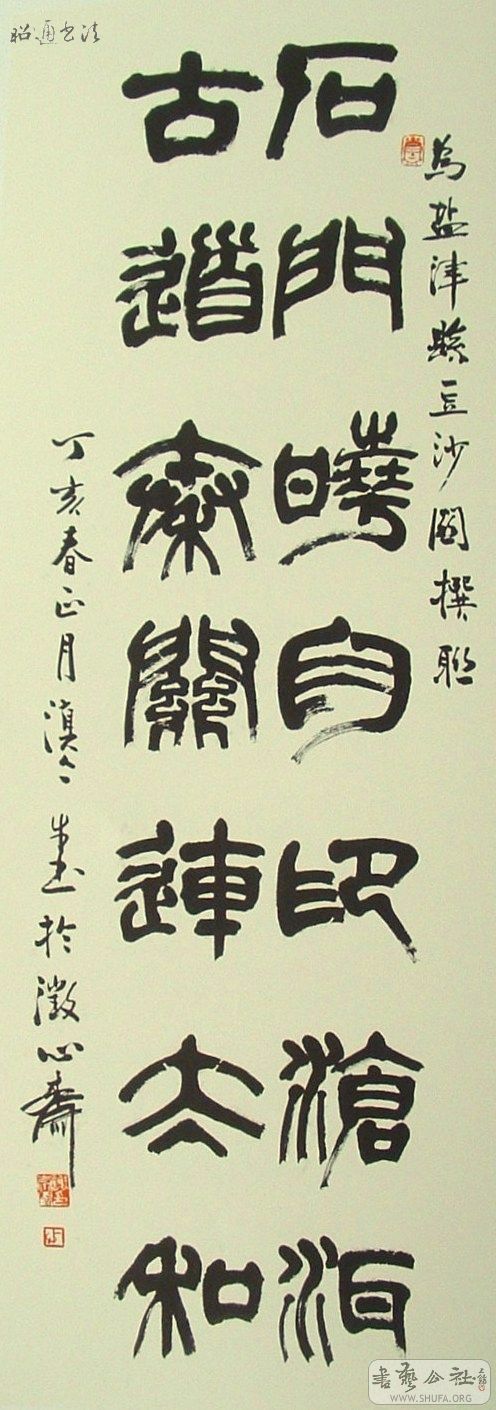 昭通书法
為盐津縣豆沙關撰聯
石門曉月印滄
古道秦關連太和
丁亥春正月 書於澂心齋
書藝公社
WWW.SHUFA.ORG